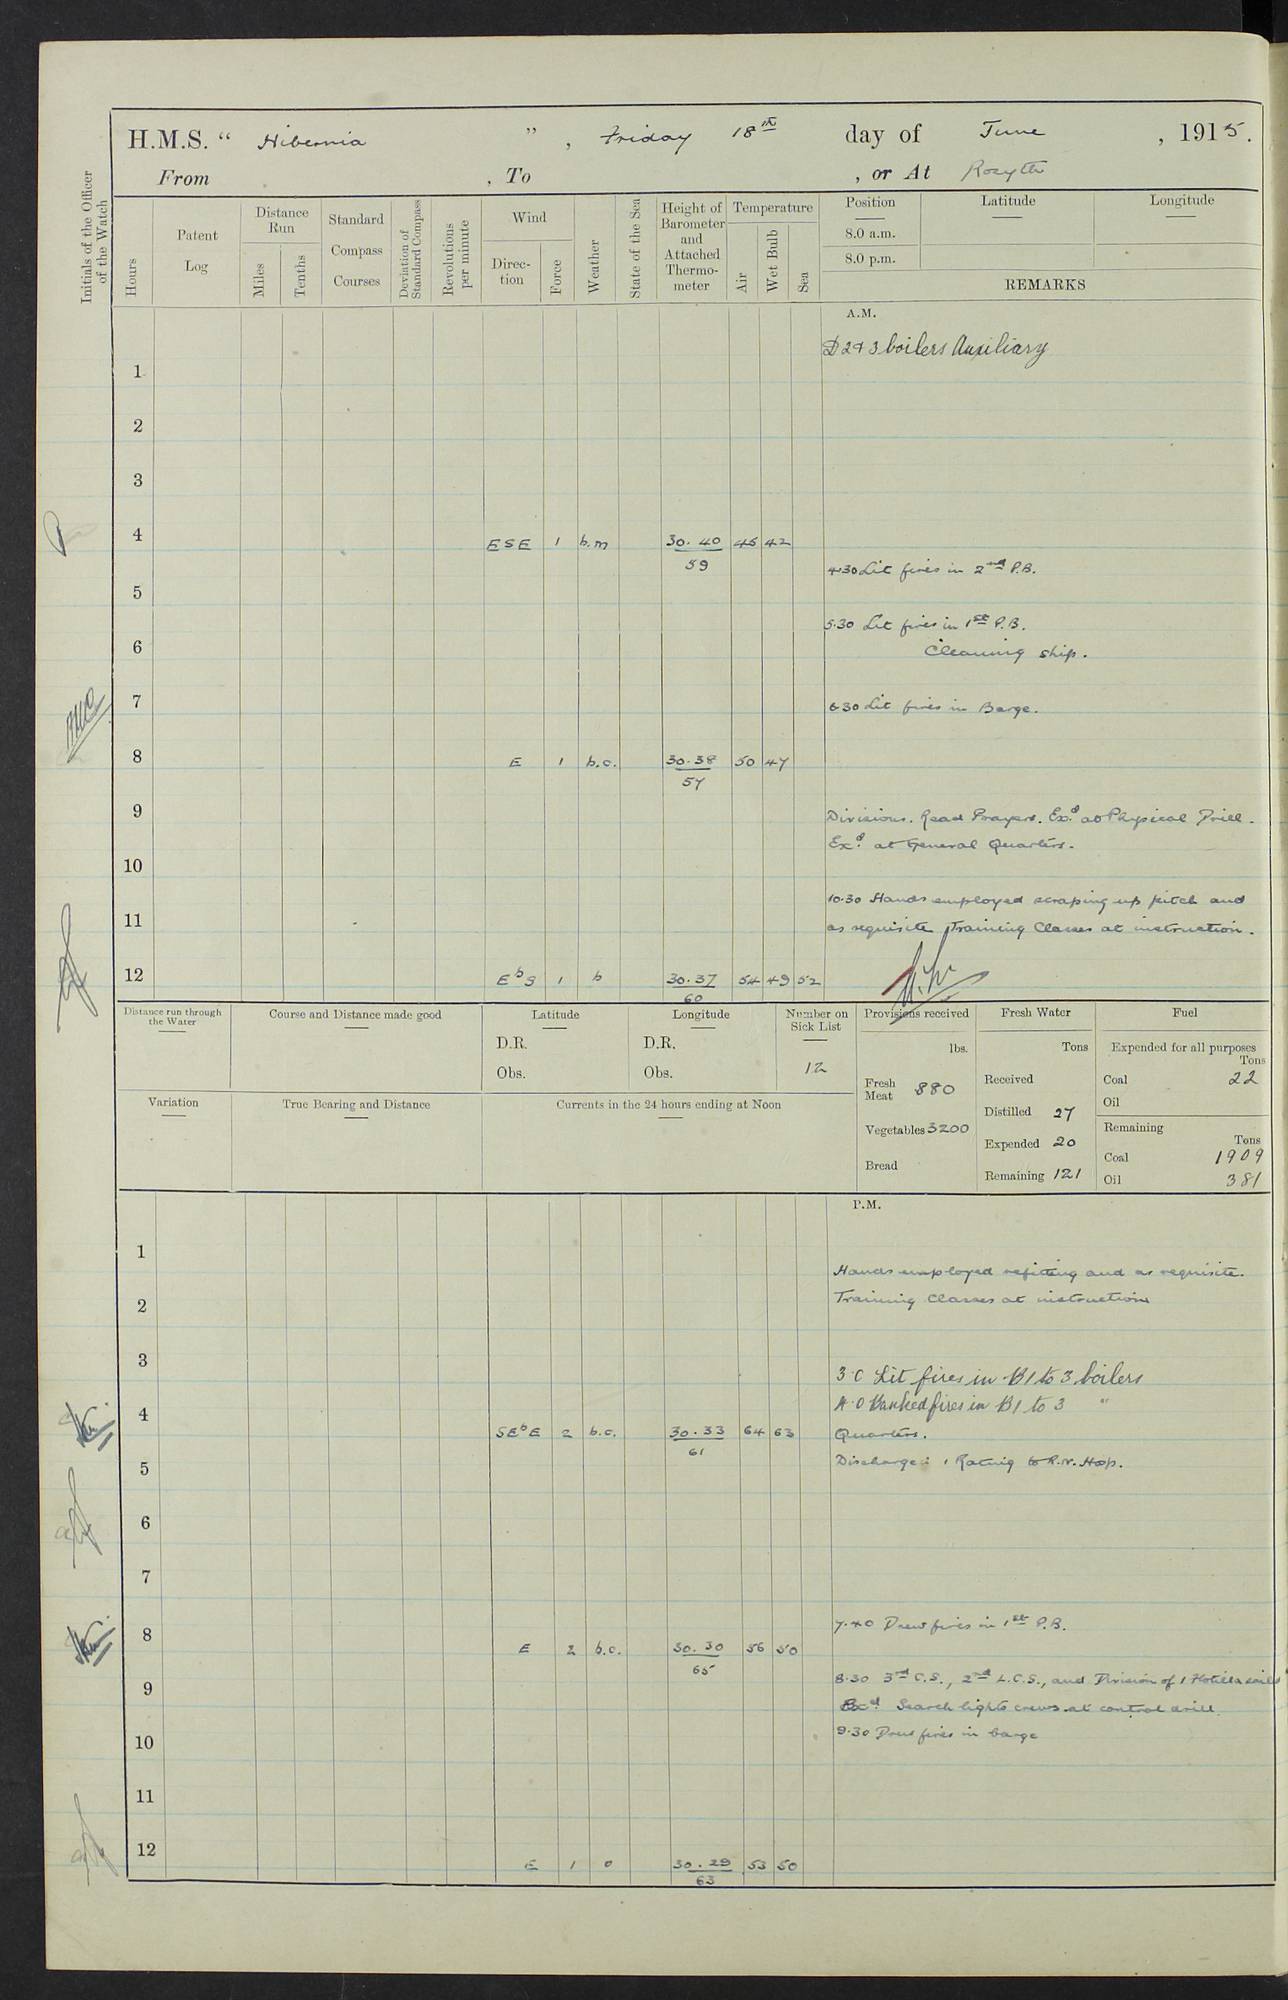 H.M.S. " Hibernia ", Friday 18th day of June, 1915.
From , To , or At Rosyth
Initials of the Officer of the Watch
Hours
Patent Log
Distance Run
Miles
Tenths
Standard Compass Courses
Deviation of Standard Compass
Revolutions per minute
Wind
Direc-tion
Force
Weather
State of the Sea
Height of Barometer and Attached Thermo-meter
Temperature
Air
Wet Bulb
Sea
Position
Latitude
Longitude
8.0 a.m.
8.0 p.m.
REMARKS
A.M.
D 2 & 3 boilers Auxiliary
1
2
3
4 ESE 1 b.m 30.40 45 42
59
4.30 Lit fires in 2nd P.B.
5
5.30 Lit fires in 1st P.B.
6 Cleaning ship.
7 6.30 Lit fires in Barge.
8 E 1 b.c. 30.38 50 47
57
9 Divisions. Read Prayers. Exd at Physical Drill.
Exd at General Quarters.
10
10.30 Hands employed scraping up pitch and
11 as requisite Training Classes at instruction.
12 EbS 1 b 30.37 54 49 52
60
Distance run through the Water
Course and Distance made good
Latitude
D.R.
Obs.
Longitude
D.R.
Obs.
Number on Sick List
12
Variation
True Bearing and Distance
Currents in the 24 hours ending at Noon
Provisions received
lbs.
Fresh Meat 880
Vegetables 3200
Bread
Fresh Water
Tons
Received
Distilled 27
Expended 20
Remaining 121
Fuel
Expended for all purposes
Tons
Coal 22
Oil
Remaining
Tons
Coal 1909
Oil 381
P.M.
1
Hands employed refitting and as requisite.
2 Training Classes at instruction
3 3.0 Lit fires in B1 to 3 boilers
4 4.0 Banked fires in B1 to 3 "
SEbE 2 b.c. 30.33 64 63 Quarters.
61
5 Discharge: 1 Rating to R.N. Hosp.
6
7
7.40 Drew fires in 1st P.B.
8 E 2 b.c. 30.30 56 50
65
8.30 3rd C.S., 2nd L.C.S., and Division of 1 Flotilla sailed
9 Exd Search lights crews at control drill
10 9.30 Drew fires in barge
11
12 E 1 o 30.29 53 50
63